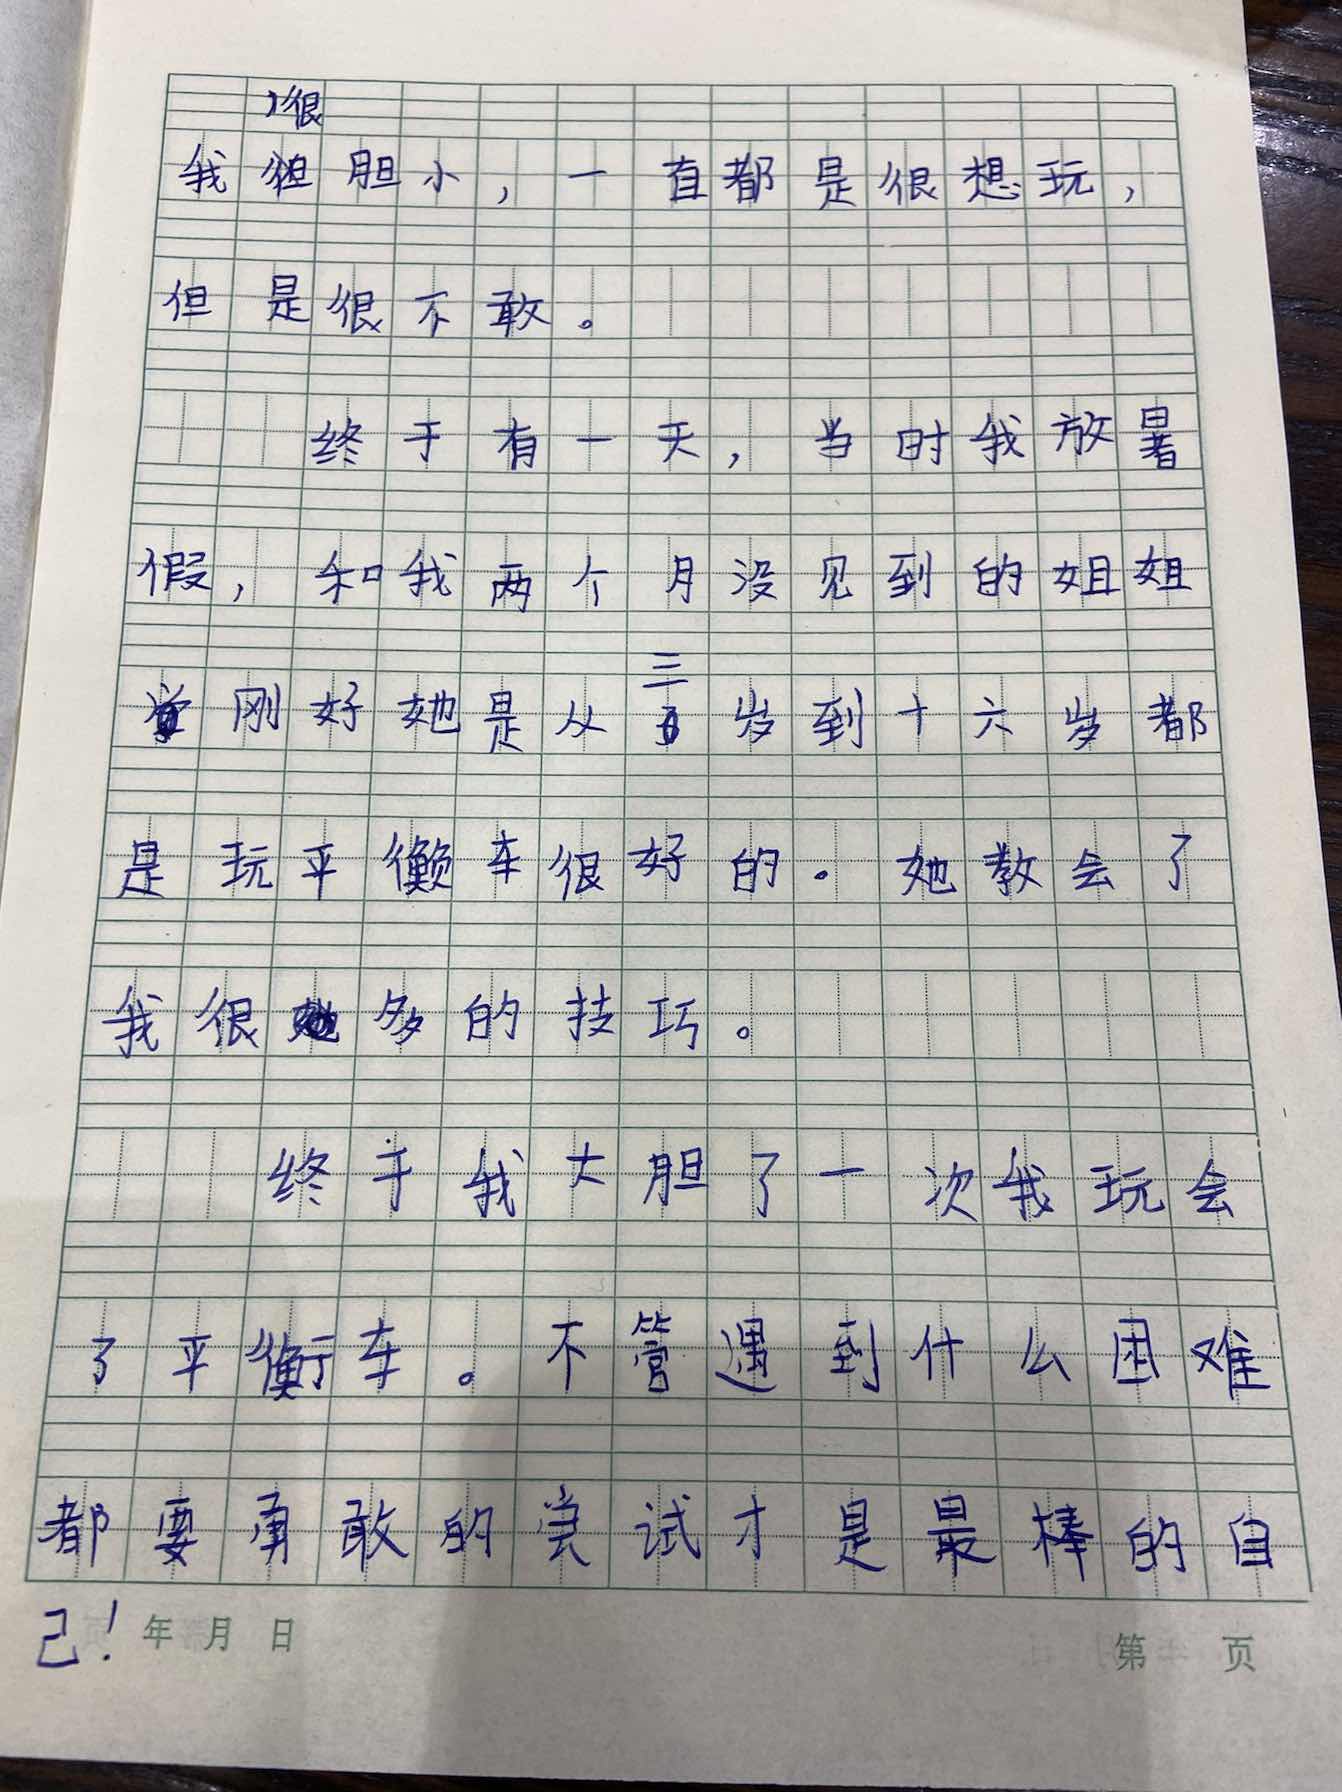 很
我胆小，一直都是很想玩，
但是很不敢。
终于有一天，当时我放暑
假，和我两个月没见到的姐姐
三
刚好她是从岁到十六岁都
是玩平车很好的。她教会了
我很多的技巧。
终于我大胆了一次我玩会
了平衡车。不管遇到什么困难
都要勇敢的尝试才是最棒的自
己！年 月 日
第 页